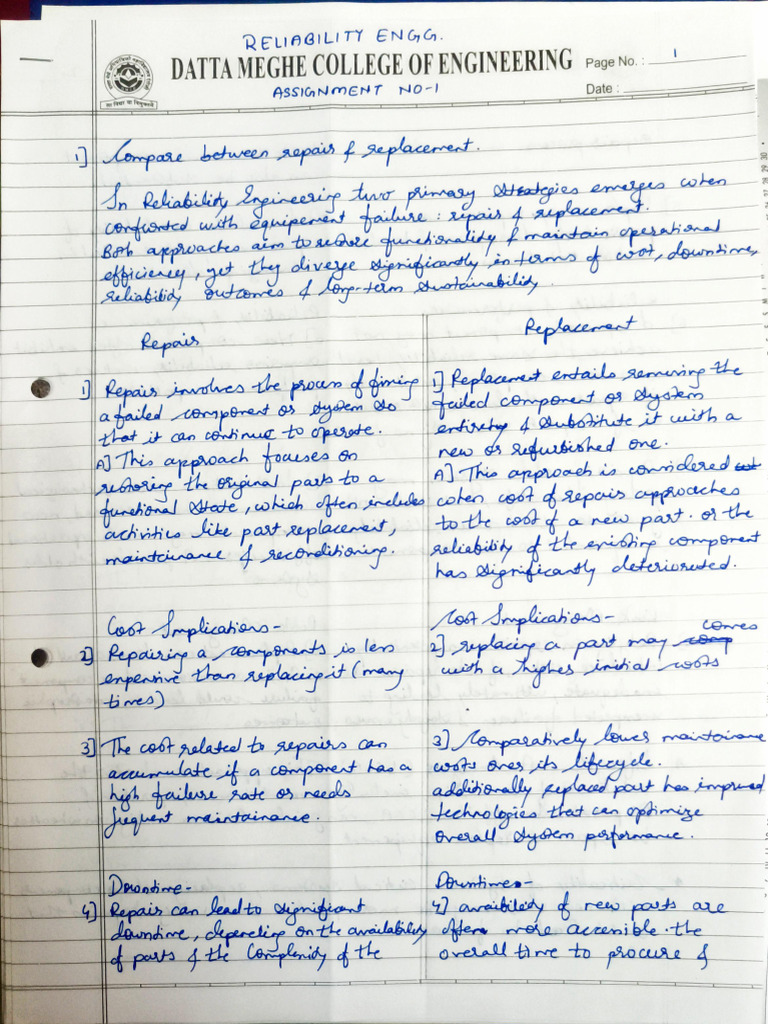 RELIABILITY ENGG.
DATTA MEGHE COLLEGE OF ENGINEERING
Page No. : 1
ASSIGNMENT NO-1
Date :
1] Compare between repair & replacement.
In Reliability Engineering two primary strategies emerges when
confronted with equipement failure : repair & replacement.
Both approaches aim to restore functionality & maintain operational
efficiency, yet they diverge significantly in terms of cost, downtime,
reliability outcomes & long-term sustainability.
Repair
1] Repair involves the process of fixing
a failed component or system so
that it can continue to operate.
A] This approach focuses on
restoring the original parts to a
functional state, which often includes
activities like part replacement,
maintainance & reconditioning.
Cost Implications-
2] Repairing a components is less
expensive than replacing it (many
times)
3] The cost related to repairs can
accumulate if a component has a
high failure rate or needs
frequent maintainance.
Downtime-
4] Repair can lead to significant
downtime, depending on the availability
of parts & the complexity of the
Replacement
1] Replacement entails removing the
failed component or system
entirely & substitute it with a
new or refurbished one.
A] This approach is considered
when cost of repair approaches
to the cost of a new part. or the
reliability of the existing component
has significantly deteriorated.
Cost Implications-
2] replacing a part may comes
with a higher initial costs
3] Comparatively lower maintainance
costs over its lifecycle.
additionally replaced part has improved
technologies that can optimize
overall system performance.
Downtime-
4] availability of new parts are
often more accessible. the
overall time to procure &